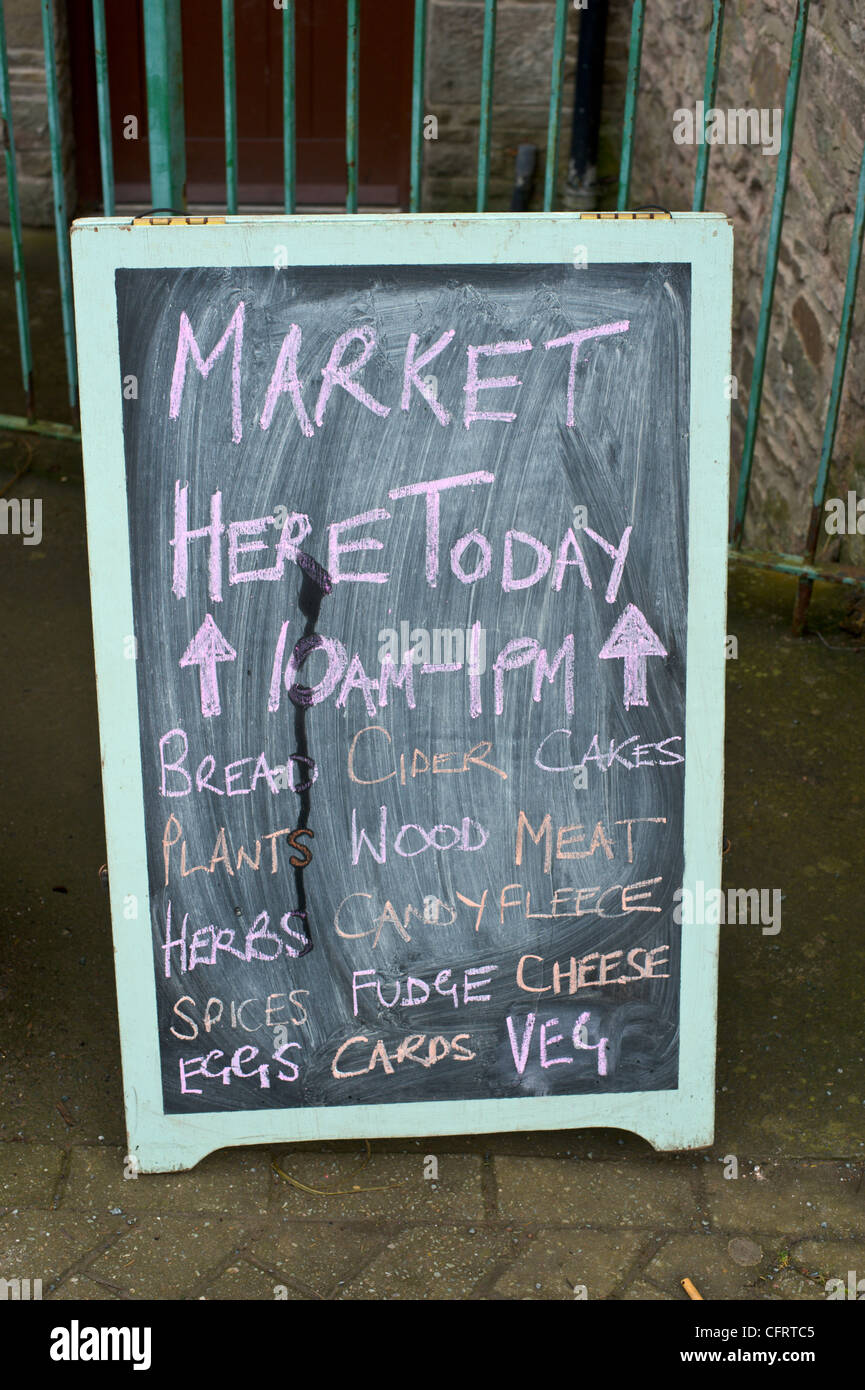 MARKET
HERE TODAY
↑ 10AM-1PM ↑
BREAD CIDER CAKES
PLANTS WOOD MEAT
HERBS CANDY FLEECE
SPICES FUDGE CHEESE
EGGS CARDS VEG
alamy
Image ID: CFRTC5
www.alamy.com